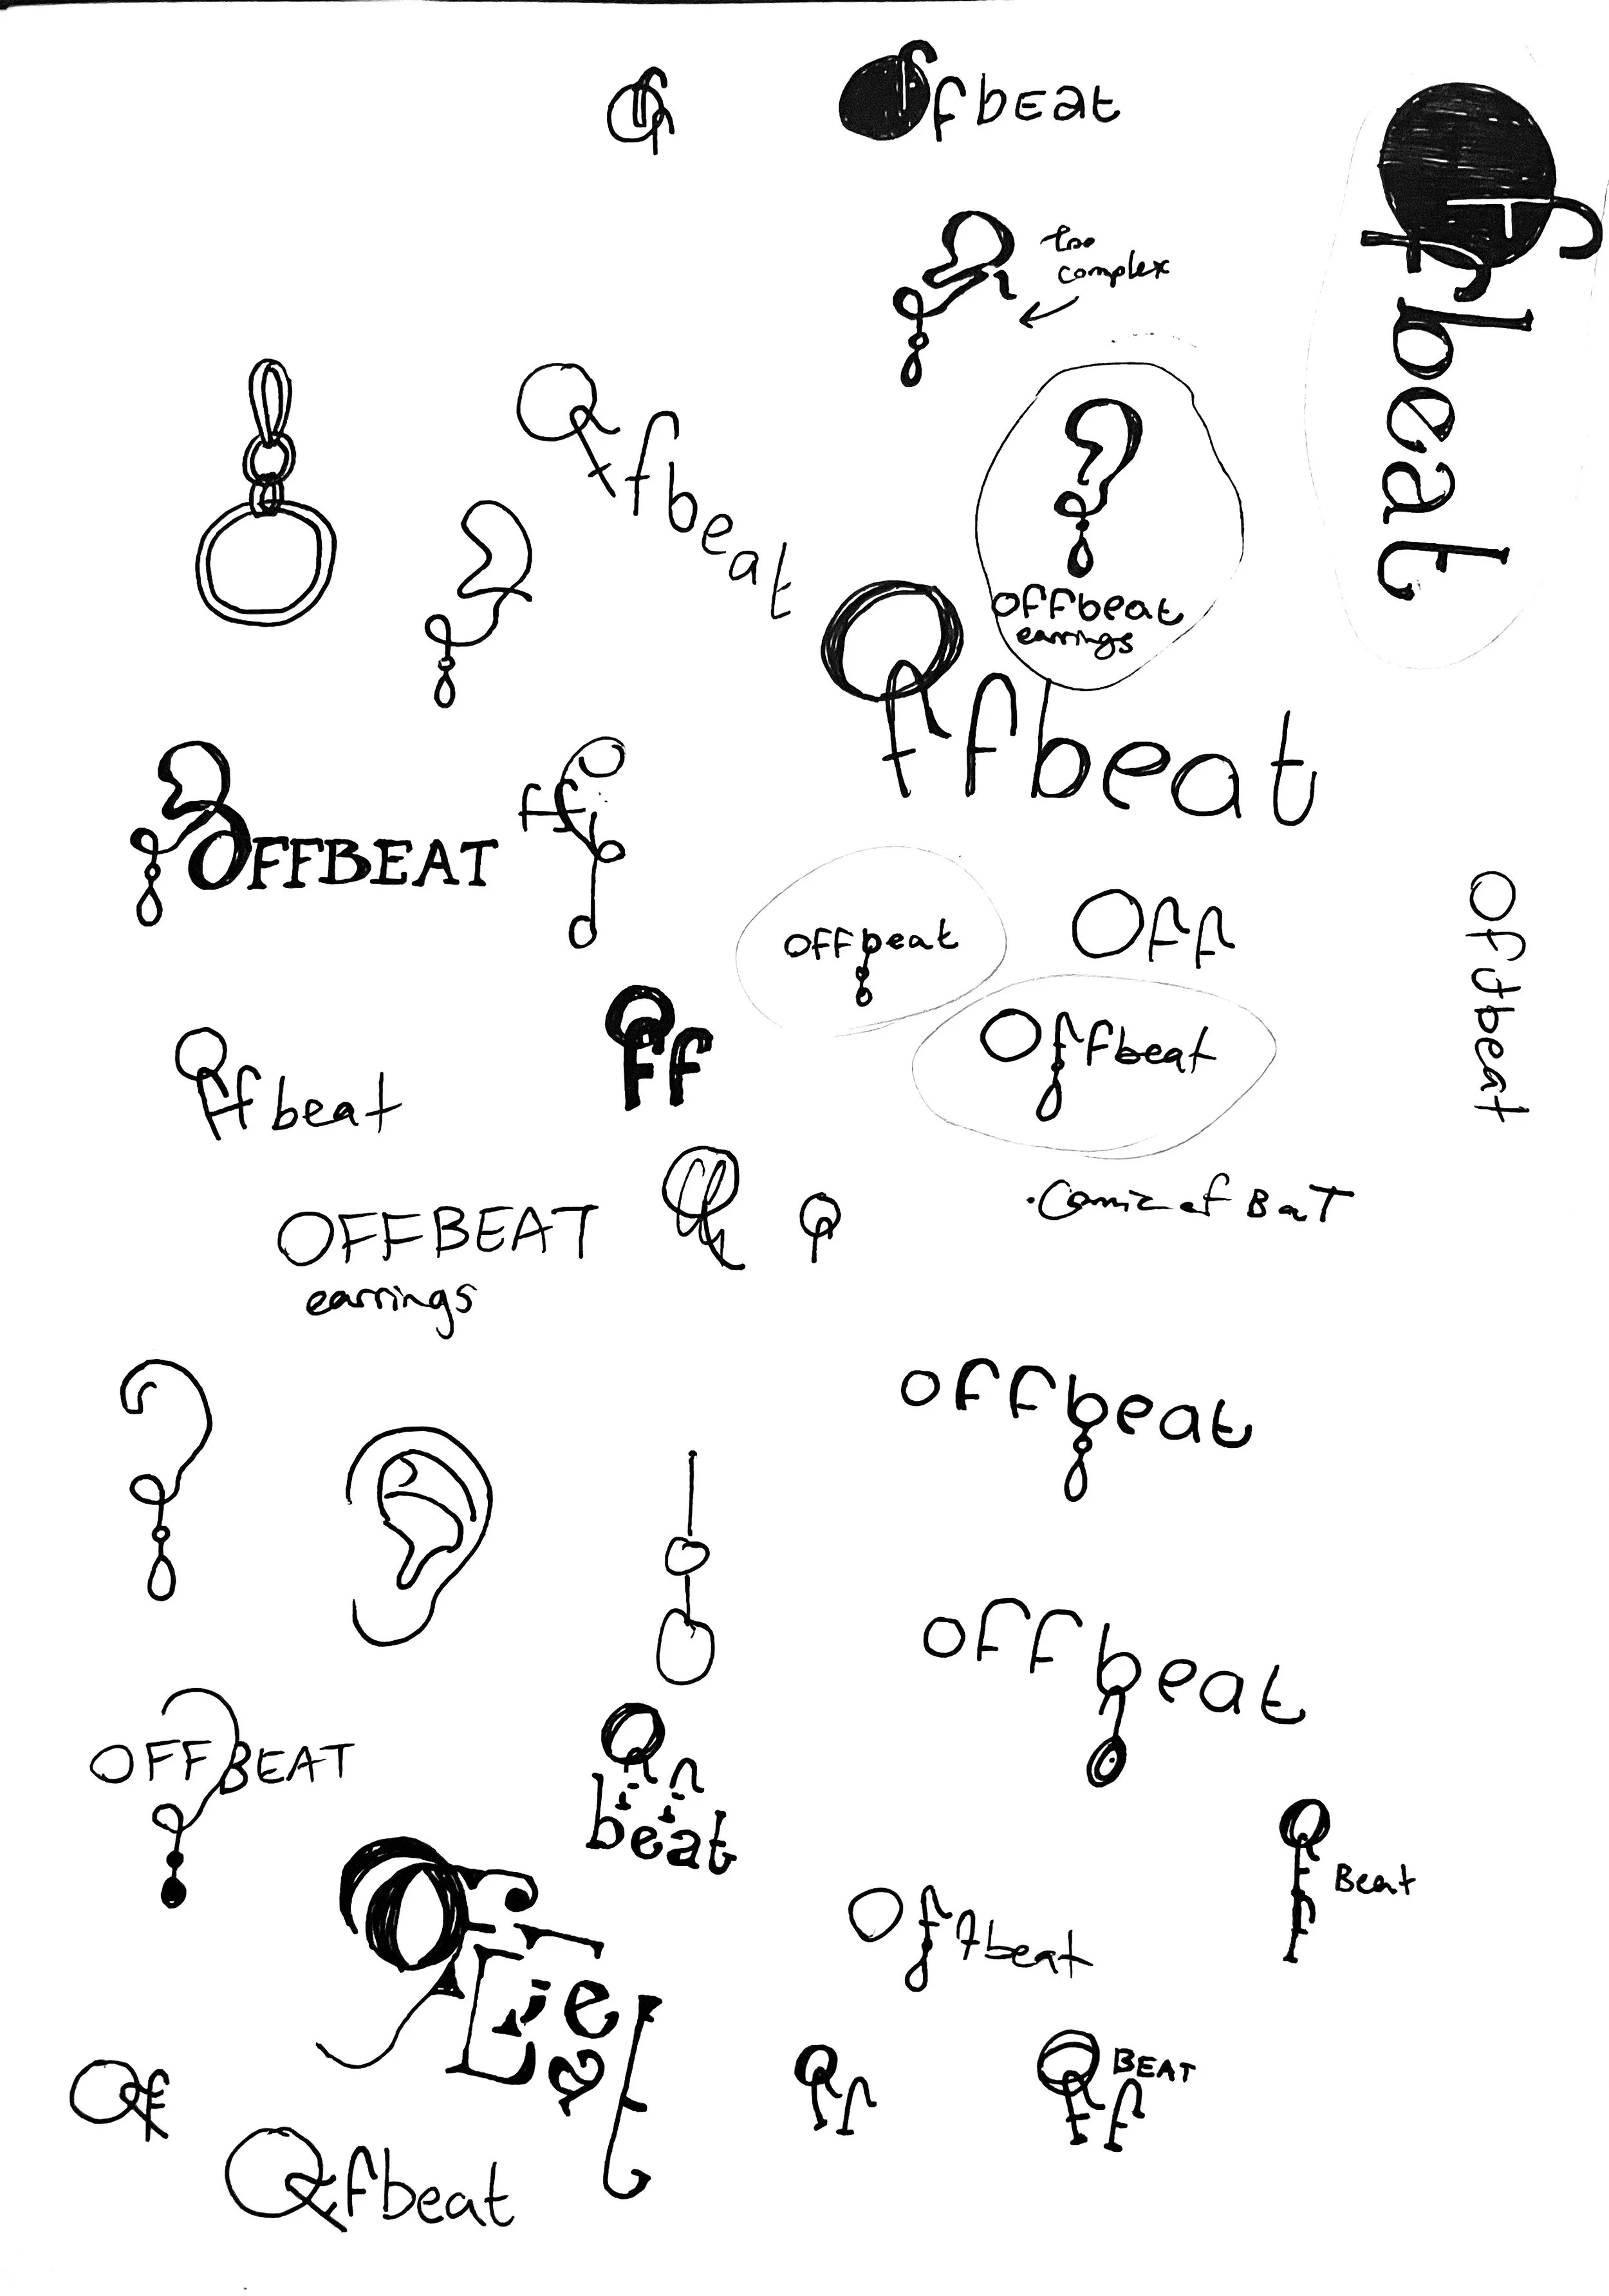 Offbeat
Offbeat
too
complex
Offbeat
offbeat
earrings
Offbeat
OFFBEAT
ff
b
offbeat
Off
Offbeat
Offbeat
Offbeat
Off
OFFBEAT
earrings
offbeat
offbeat
OFFBEAT
Off
beat
Off
Beat
Offbeat
Off
BEAT
Off
Of
Offbeat